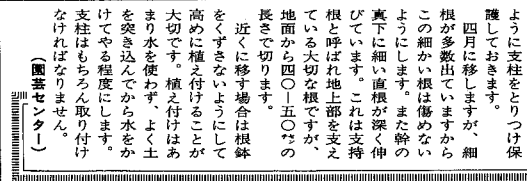 ように支柱をとりつけ保
護しておきます。
四月に移しますが、細
根が多数出ていますから
この細かい根は傷めない
ようにします。また幹の
真下に細い直根が深く伸
びています。これは支持
根と呼ばれ地上部を支え
ている大切な根ですが、
地面から四〇―五〇㌢の
長さで切ります。
近くに移す場合は根鉢
をくずさないようにして
高めに植え付けることが
大切です。植え付けはあ
まり水を使わず、よく土
を突き込んでから水をか
けてやる程度にします。
支柱はもちろん取り付け
なければなりません。
(園芸センター)